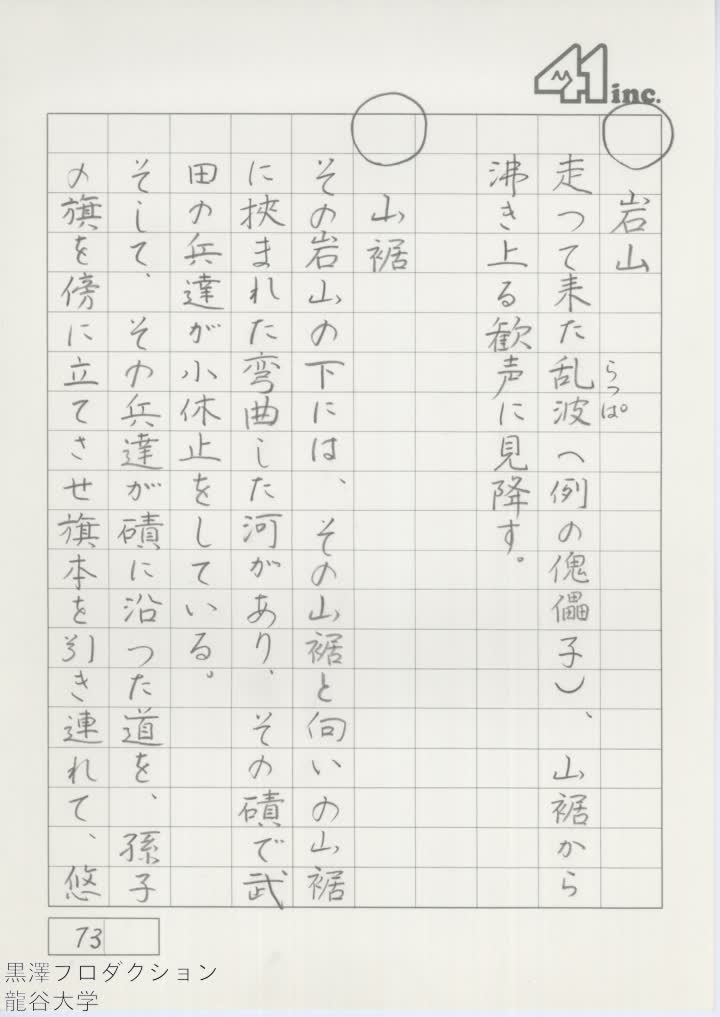 41 inc.
岩山
走つて来た乱波（例の傀儡子）、山裾から
らつぱ
沸き上る歓声に見降す。
山裾
その岩山の下には、その山裾と向いの山裾
に挾まれた弯曲した河があり、その磧で武
田の兵達が小休止をしている。
そして、その兵達が磧に沿つた道を、孫子
の旗を傍に立てさせ旗本を引き連れて、悠
73
黒澤フロダクション
龍谷大学